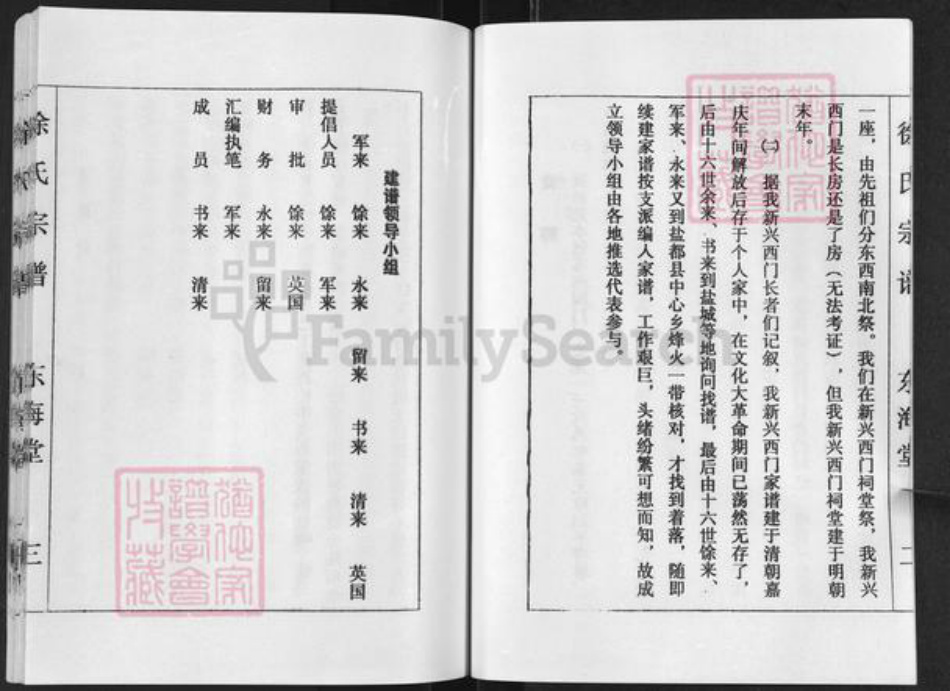 徐氏宗谱　东海堂　二
一座，由先祖们分东西南北祭。我们在新兴西门祠堂祭，我新兴
西门是长房还是了房（无法考证），但我新兴西门祠堂建于明朝
末年。
㈡　据我新兴西门长者们记叙，我新兴西门家谱建于清朝嘉
庆年间解放后存于个人家中，在文化大革命期间已荡然无存了，
后由十六世余来、书来到盐城等地询问找谱，最后由十六世馀来、
军来、永来又到盐都县中心乡烽火一带核对，才找到着落，随即
续建家谱按支派编人家谱，工作艰巨，头绪纷繁可想而知，故成
立领导小组由各地推选代表参与。
建谱领导小组
军来　馀来　永来　留来　书来　清来　英国
提倡人员　馀来　军来
审批　馀来　英国
财务　永来　留来
汇编执笔　军来
成员　书来　清来
徐氏宗谱　东海堂　三
FamilySearch